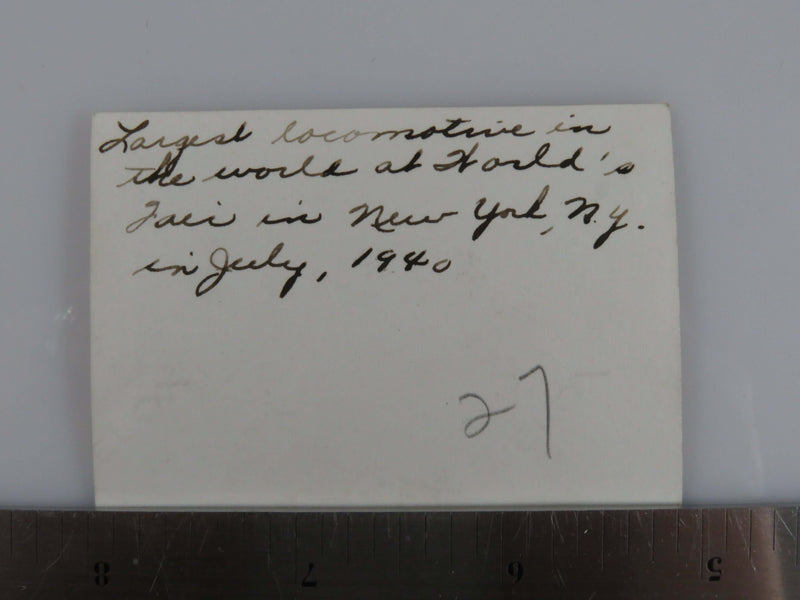 Largest locomotive in
the world at World's
Fair in New York, N.Y.
in July, 1940
27
8 7 6 5